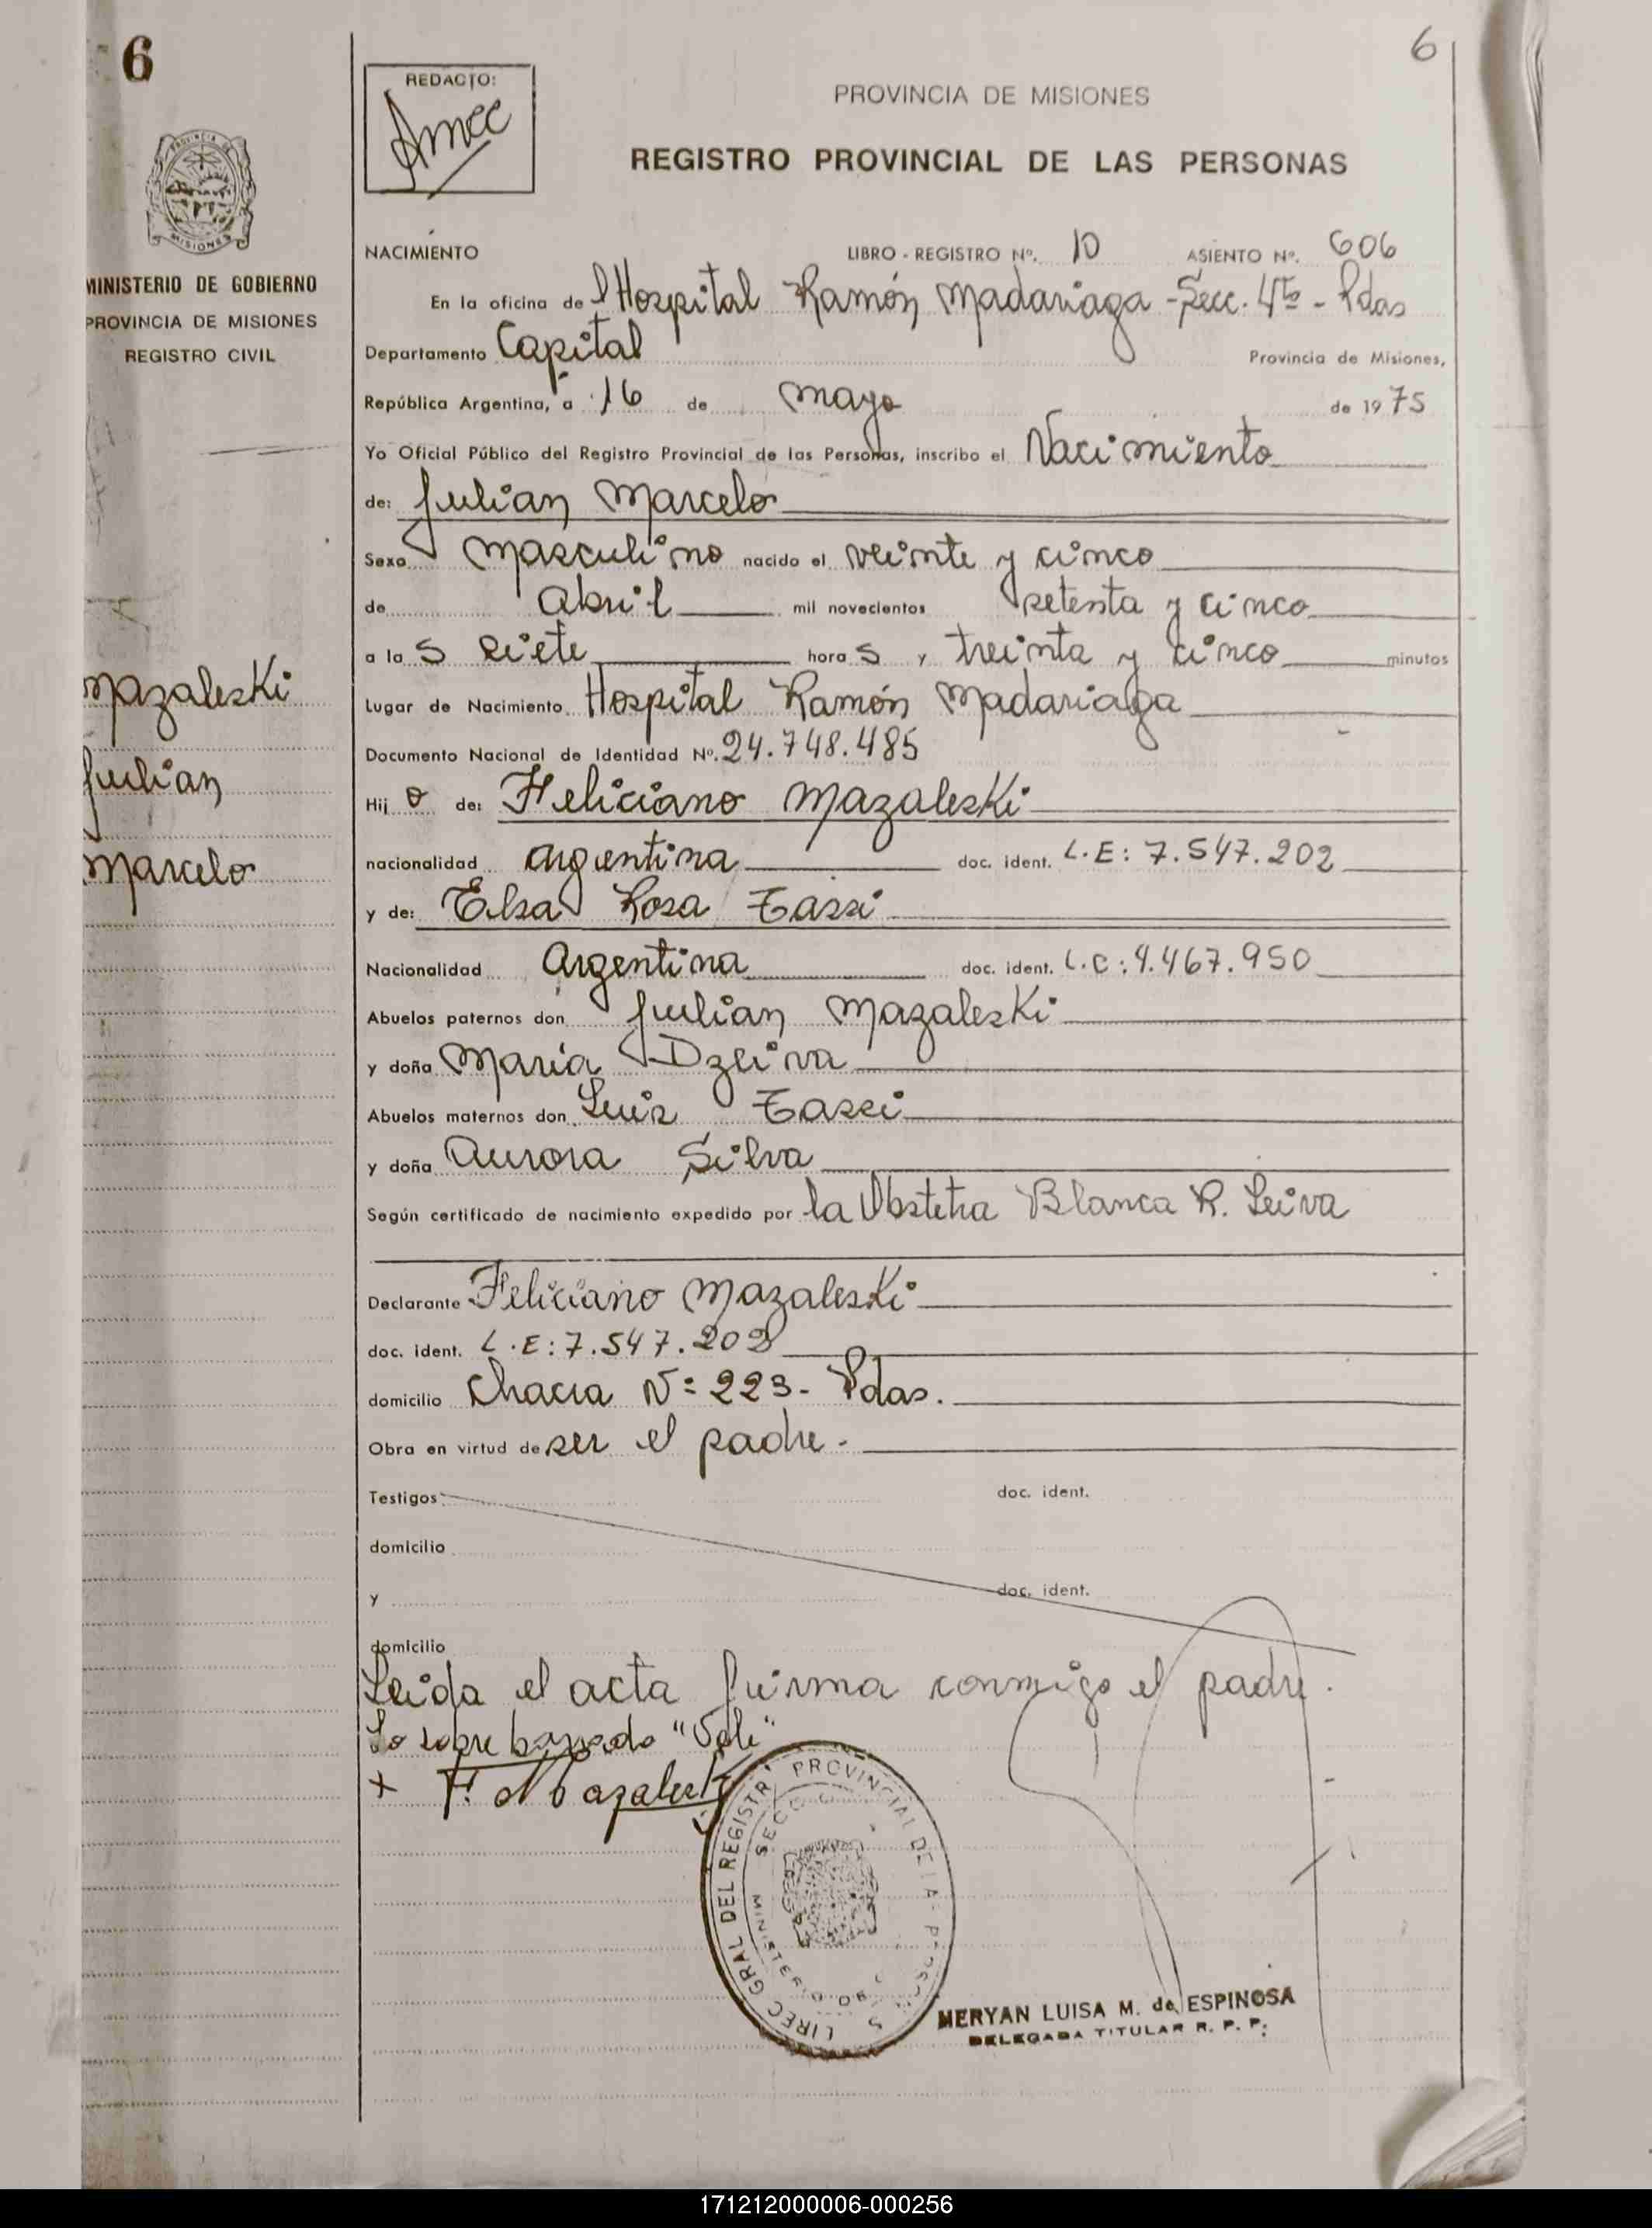 6
6
REDACTO:
PROVINCIA DE MISIONES
REGISTRO PROVINCIAL DE LAS PERSONAS
PROVINCIA DE
MISIONES
MINISTERIO DE GOBIERNO
PROVINCIA DE MISIONES
REGISTRO CIVIL
NACIMIENTO LIBRO - REGISTRO Nº. 10 ASIENTO Nº. 606
En la oficina de l Hospital Ramón Madariaga - Secc. 4ta - Pdas
Departamento Capital Provincia de Misiones,
República Argentina, a 16 de mayo de 1975
Yo Oficial Público del Registro Provincial de las Personas, inscribo el Nacimiento
de: Julian Marcelo
Sexo masculino nacido el veinte y cinco
de Abril mil novecientos setenta y cinco
a la s siete hora s y treinta y cinco minutos
Mazaleski
Julian
Marcelo
Lugar de Nacimiento Hospital Ramón Madariaga
Documento Nacional de Identidad Nº. 24.748.485
Hij o de: Feliciano Mazaleski
nacionalidad argentina doc. ident. L.E: 7.547.202
y de: Elsa Rosa Tassi
Nacionalidad Argentina doc. ident. L.C: 4.467.950
Abuelos paternos don Julian Mazaleski
y doña María Dzeiva
Abuelos maternos don Luis Tassi
y doña Aurora Silva
Según certificado de nacimiento expedido por la Obstetra Blanca R. Leiva
Declarante Feliciano Mazaleski
doc. ident. L.E: 7.547.202
domicilio Chacra Nº 223- Pdas.
Obra en virtud de ser el padre.
Testigos: doc. ident.
domicilio
y doc. ident.
domicilio
Leida el acta firma conmigo el padre.
Lo sobre borrado "Vale"
x F. Mazaleski
DIREC GRAL DEL REGISTR PROVINCIAL DE LA PERSONAS
MINISTERIO DE
MERYAN LUISA M. de ESPINOSA
DELEGADA TITULAR R. P. P.
171212000006-000256